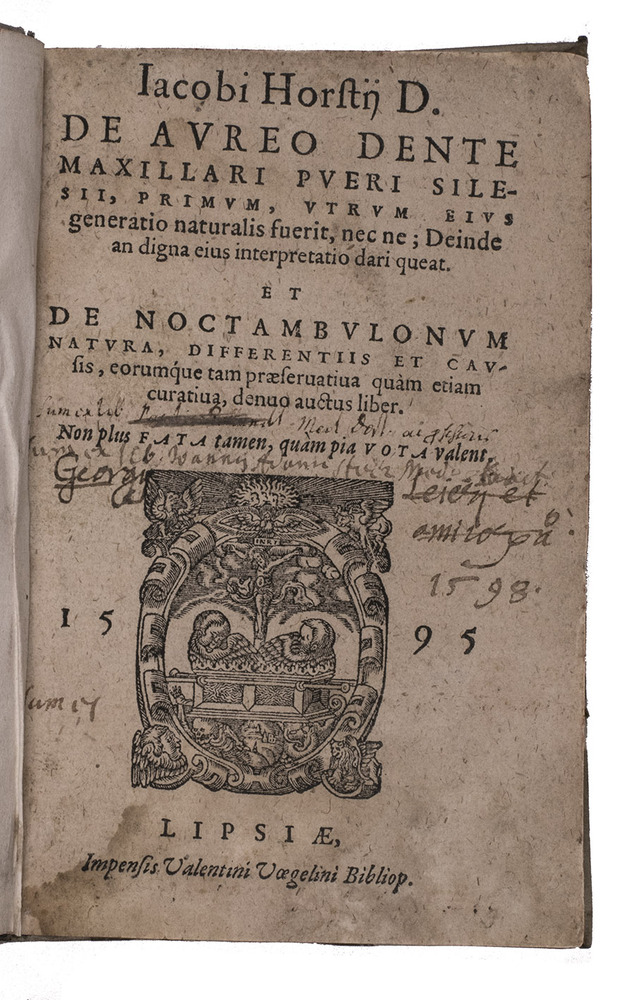 Iacobi Horſtij D.
DE AVREO DENTE
MAXILLARI PVERI SILE-
SII, PRIMVM, VTRVM EIVS
generatio naturalis fuerit, nec ne; Deinde
an digna eius interpretatio dari queat.
ET
DE NOCTAMBVLONVM
NATVRA, DIFFERENTIIS ET CAV-
ſis, eorumq́ue tam præſeruatiua quàm etiam
curatiua, denuo auctus liber.
Sum ex lib
Non plus FATA tamen, quàm pia VOTA valent.
Georgy
et
amico
1598.
INRI
15 95
Sum ex
LIPSIÆ,
Impenſis Valentini Vœgelini Bibliop.